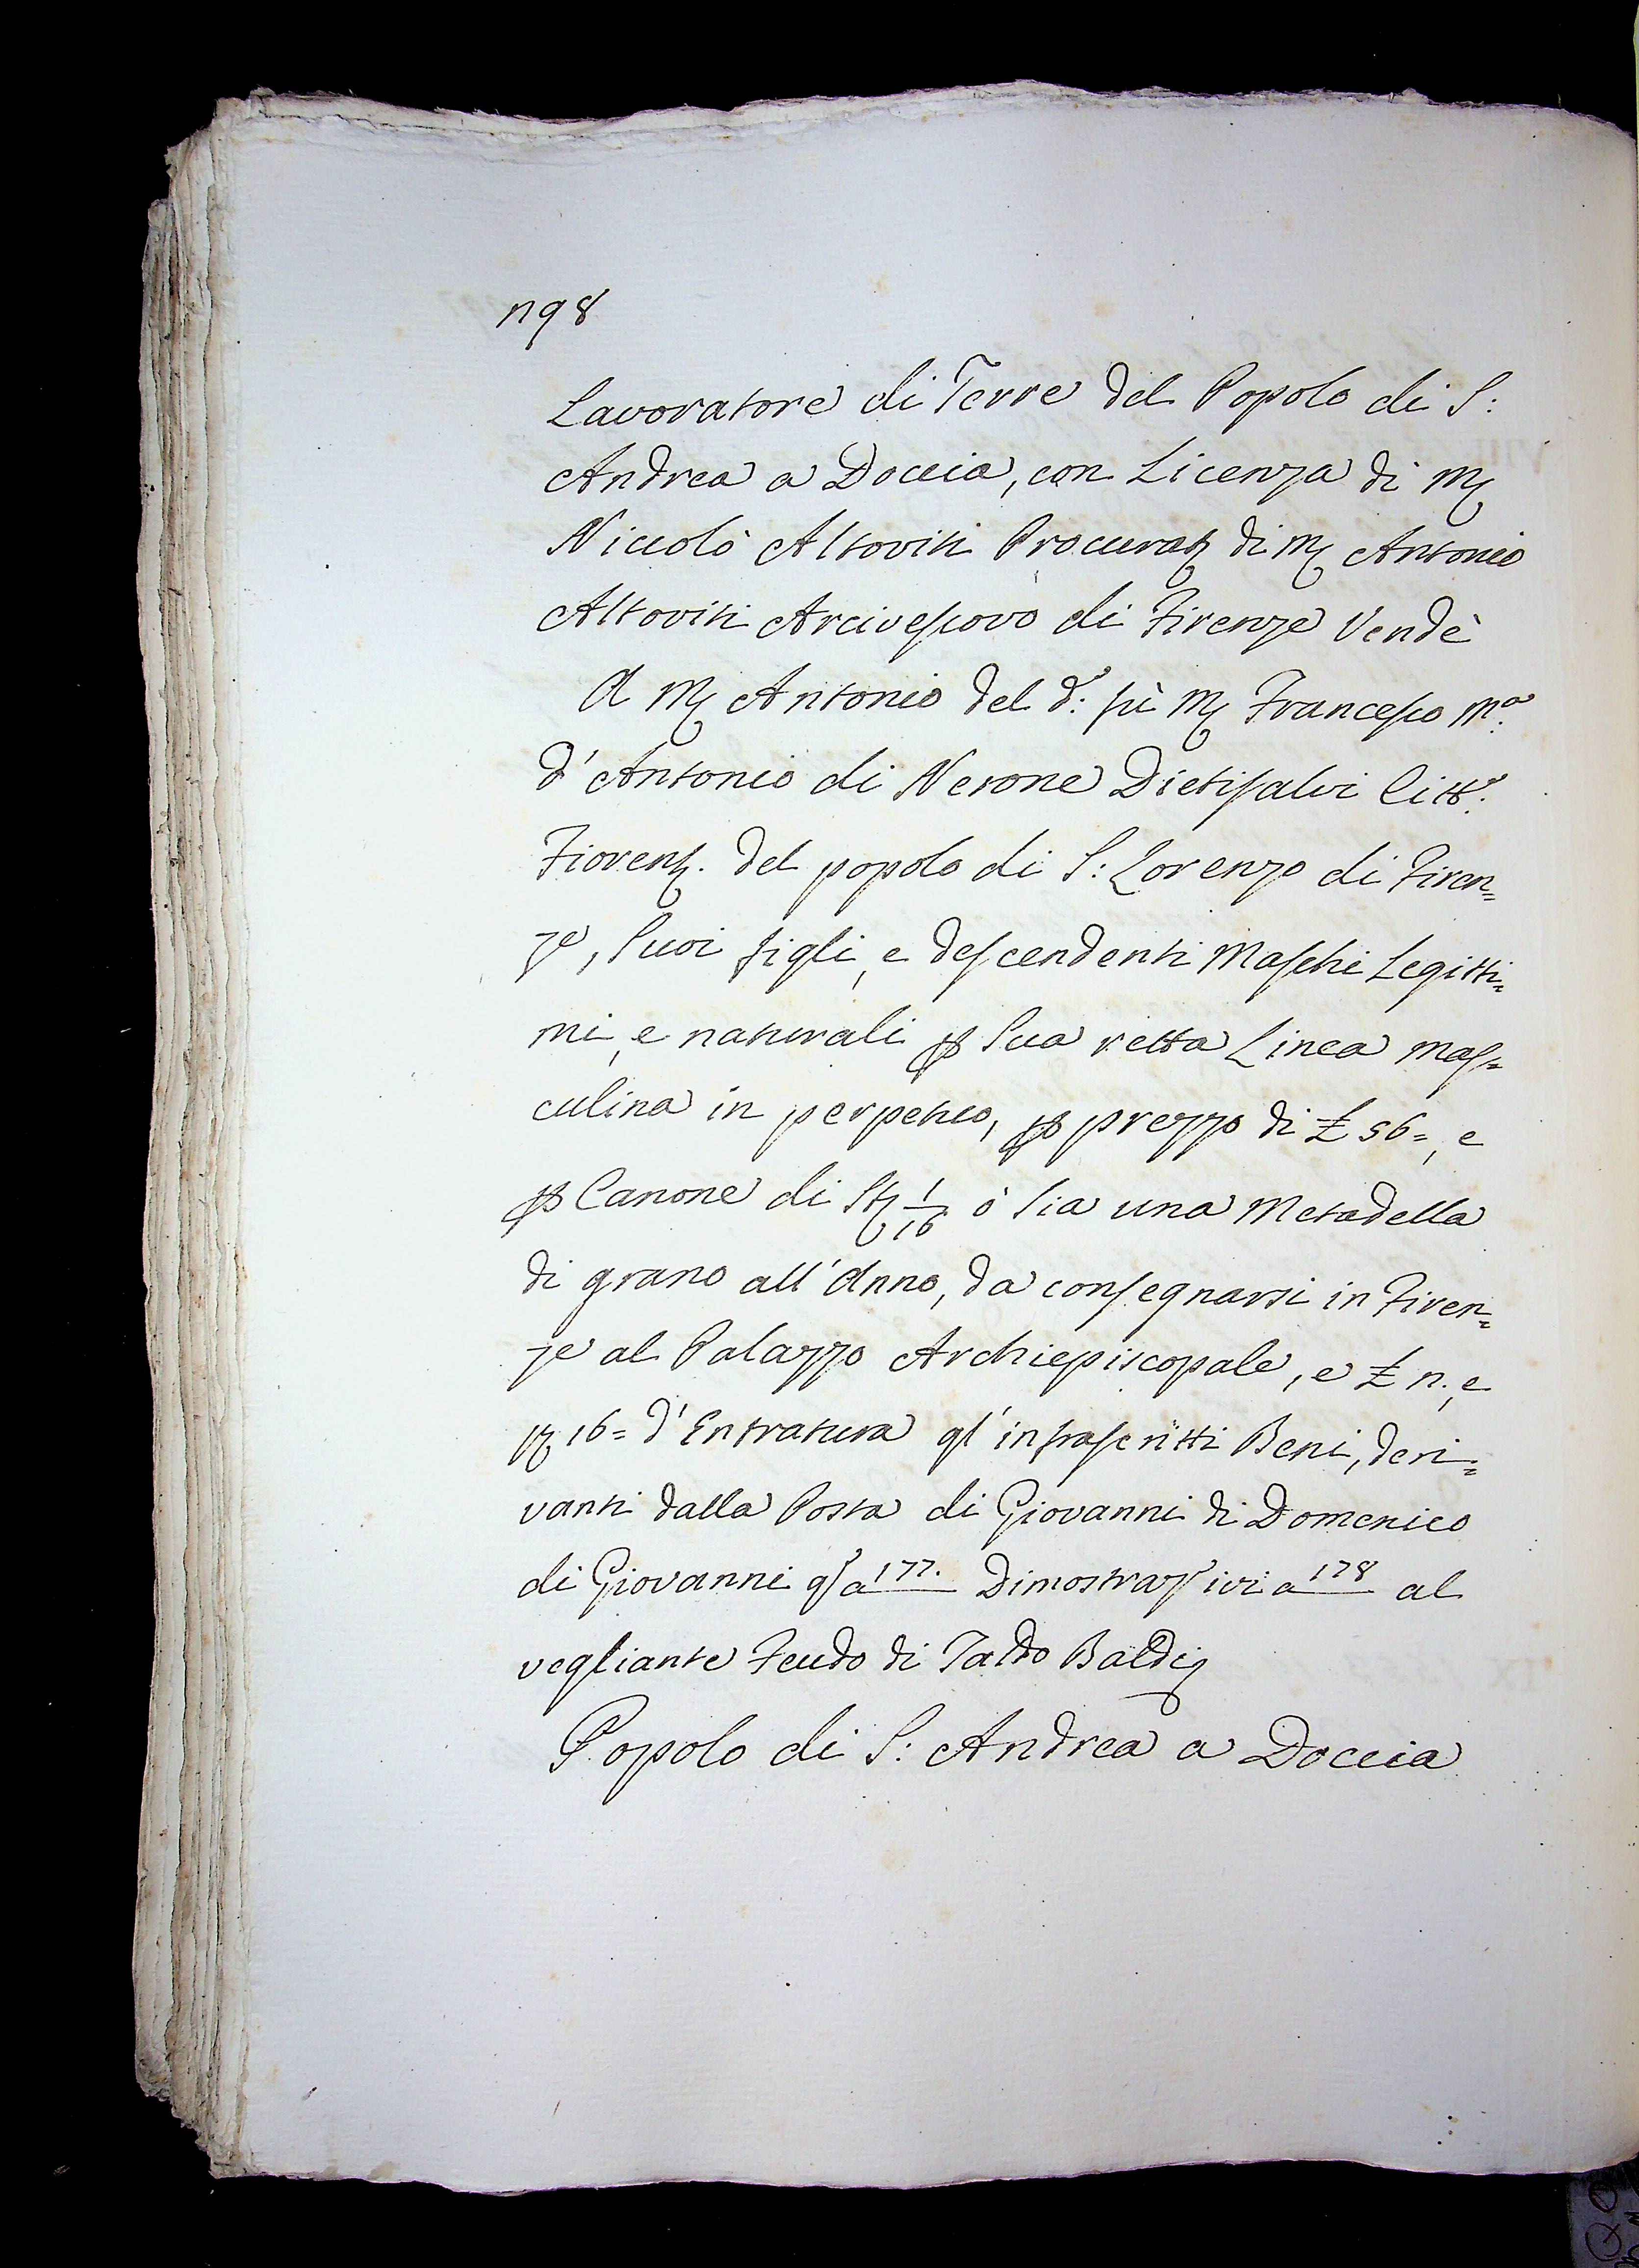 1198
Lavoratore di Terre del Popolo di S:
Andrea a Doccia, con Licenza di M
Niccolò Altoviti Procurat di M Antonio
Altoviti Arcivescovo di Firenze Vendè
A M Antonio del d:° fù M Francesco M.a
d'Antonio di Nerone Dietisalvi Citt.°
Fiorent. del popolo di S: Lorenzo di Firen=
ze, Suoi figli, e descendenti Maschi Legitti=
mi, e naturali p Sua retta Linea mas=
culina in perpetuo, p prezzo di £ 56=, e
p Canone di St 1/16 ò sia una Metadella
di grano all'Anno, da consegnarsi in Firen=
ze al Palazzo Archiepiscopale, e £ 11., e
16= d'Entratura gl'infrascritti Beni, deri=
vanti dalla Posta di Giovanni di Domenico
di Giovanni qs a 177. Dimostraz ivi a 178 al
vegliante Feudo di Taddo Baldi
Popolo di S: Andrea a Doccia